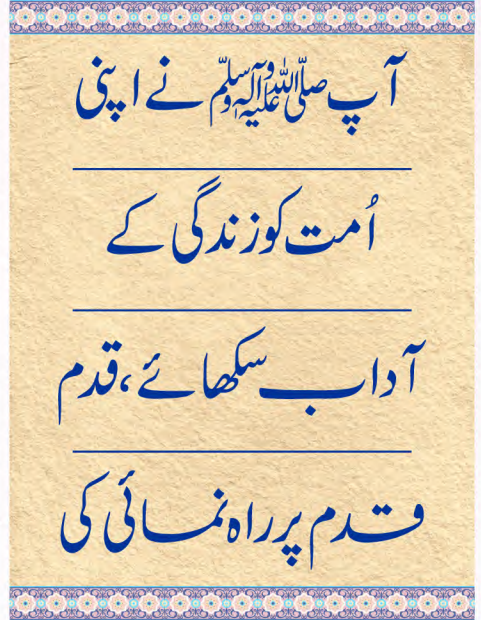 آپ صلی اللہ علیہ وآلہ وسلم نے اپنی
اُمت کو زندگی کے
آداب سکھائے، قدم
قدم پر راہ نمائی کی